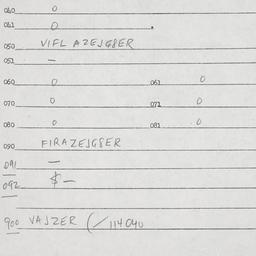 040 0
041 0
050 VIFL AZEJGSER
051 —
060 0 061 0
070 0 071 0
080 0 081 0
090 FIRAZEJGSER
091 —
092 $ —
900 VAJZER (/114040